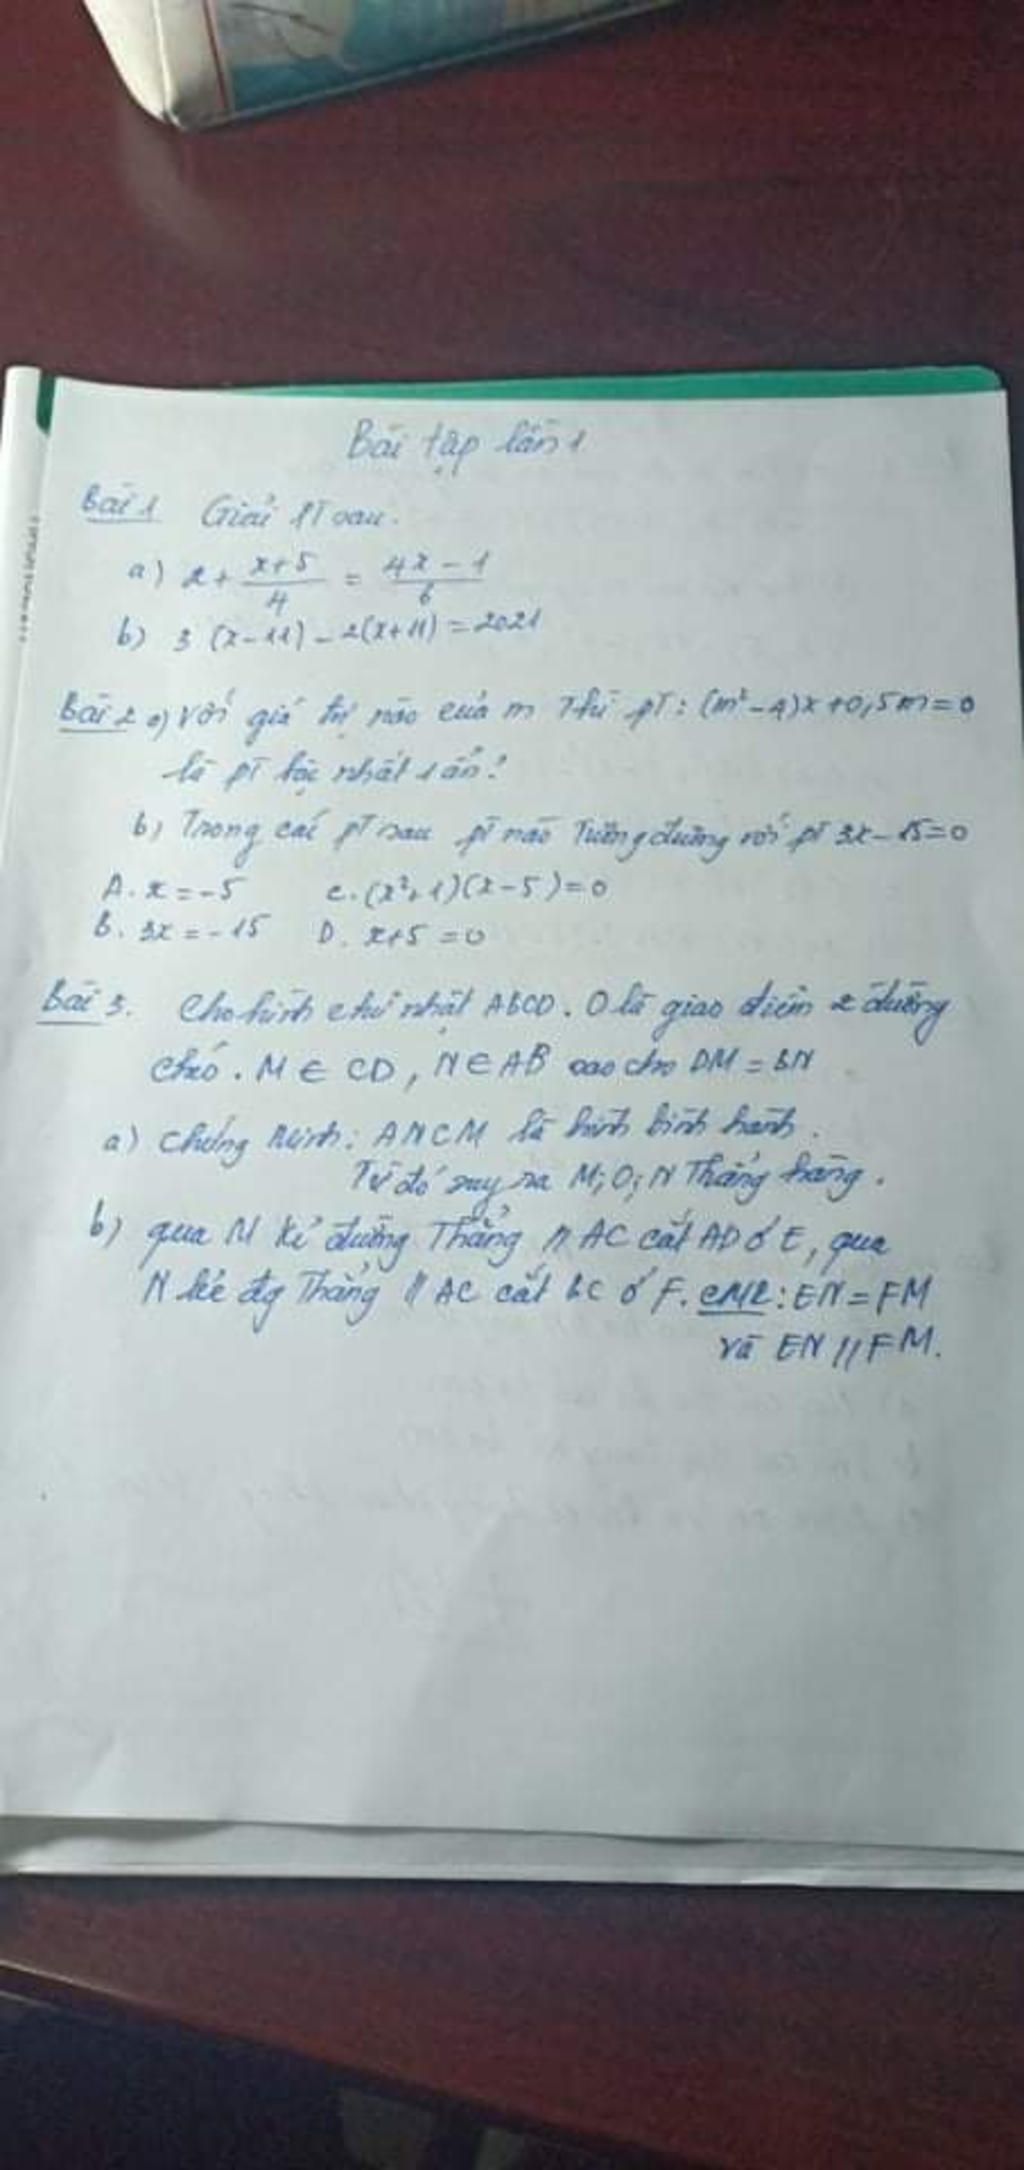 Bài tập lần 1
Bài 1 Giải PT sau.
a) 2 + (x+5)/4 = (4x-1)/6
b) 3 (x-11) - 2(x+11) = 2021
Bài 2 a) Với giá trị nào của m thì pT: (m²-4)x+0,5m=0
là pT bậc nhất 1 ẩn?
b) Trong các pT sau pT nào Tương đương với pT 3x-15=0
A. x = -5 C. (x²+1)(x-5)=0
B. 3x = -15 D. x+5 = 0
Bài 3. Cho hình chữ nhật ABCD. O là giao điểm 2 đường
chéo. M ∈ CD, N ∈ AB sao cho DM = BN
a) Chứng Minh: ANCM là hình bình hành.
Từ đó suy ra M; O; N Thẳng hàng.
b) qua M kẻ đường Thẳng // AC cắt AD ở E, qua
N kẻ đg Thẳng // AC cắt BC ở F. CMR: EN = FM
và EN // FM.